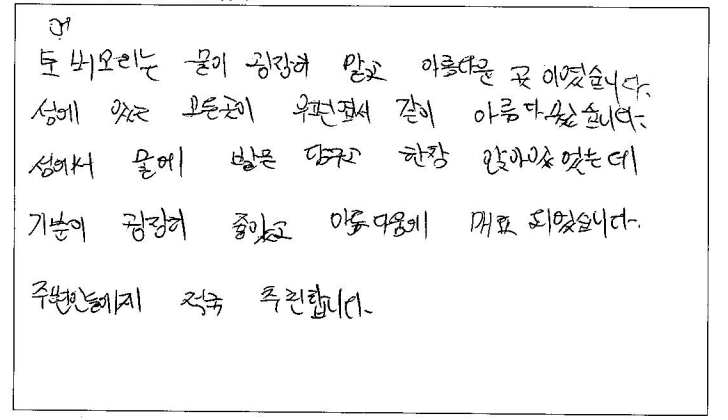 어
토버모리는 물이 굉장히 맑고 아름다운 곳 이였습니다.
섬에 있는 모든곳이 우편엽서 같이 아름다웠습니다.
섬에서 물에 발을 담구고 한참 앉아있었는데
기분이 굉장히 좋았고 아름다움에 매료 되었습니다.
주변인들에게 적극 추천합니다.